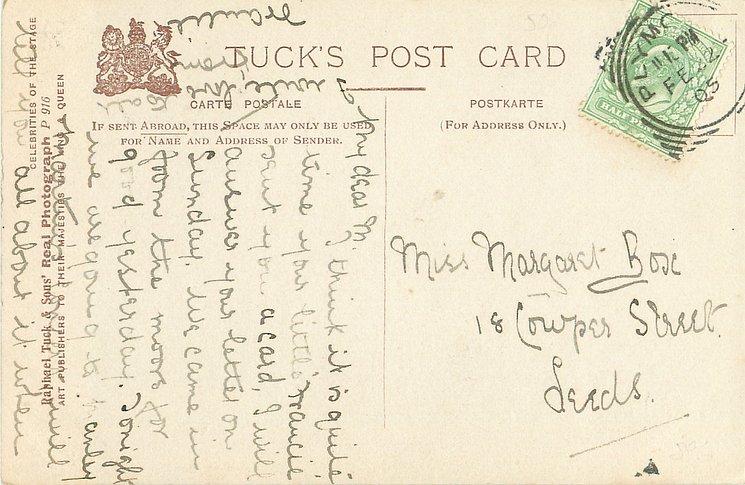 TUCK'S POST CARD
CARTE POSTALE
POSTKARTE
IF SENT ABROAD, THIS SPACE MAY ONLY BE USED
FOR NAME AND ADDRESS OF SENDER.
(FOR ADDRESS ONLY.)
CELEBRITIES OF THE STAGE
Raphael Tuck & Sons' Real Photograph P 916
ART PUBLISHERS TO THEIR MAJESTIES THE KING & QUEEN
PLYMO
FE 12
05
HALF
My dear M, think it is quite
time your little Francie
sent you a card, I will
answer your letter on
Sunday, we came in
from the moors for
good yesterday. Tonight
we are going to
will
tell you all about it when
I write. love
from
Miss Margaret Box
18 Cowper Street.
Leeds.